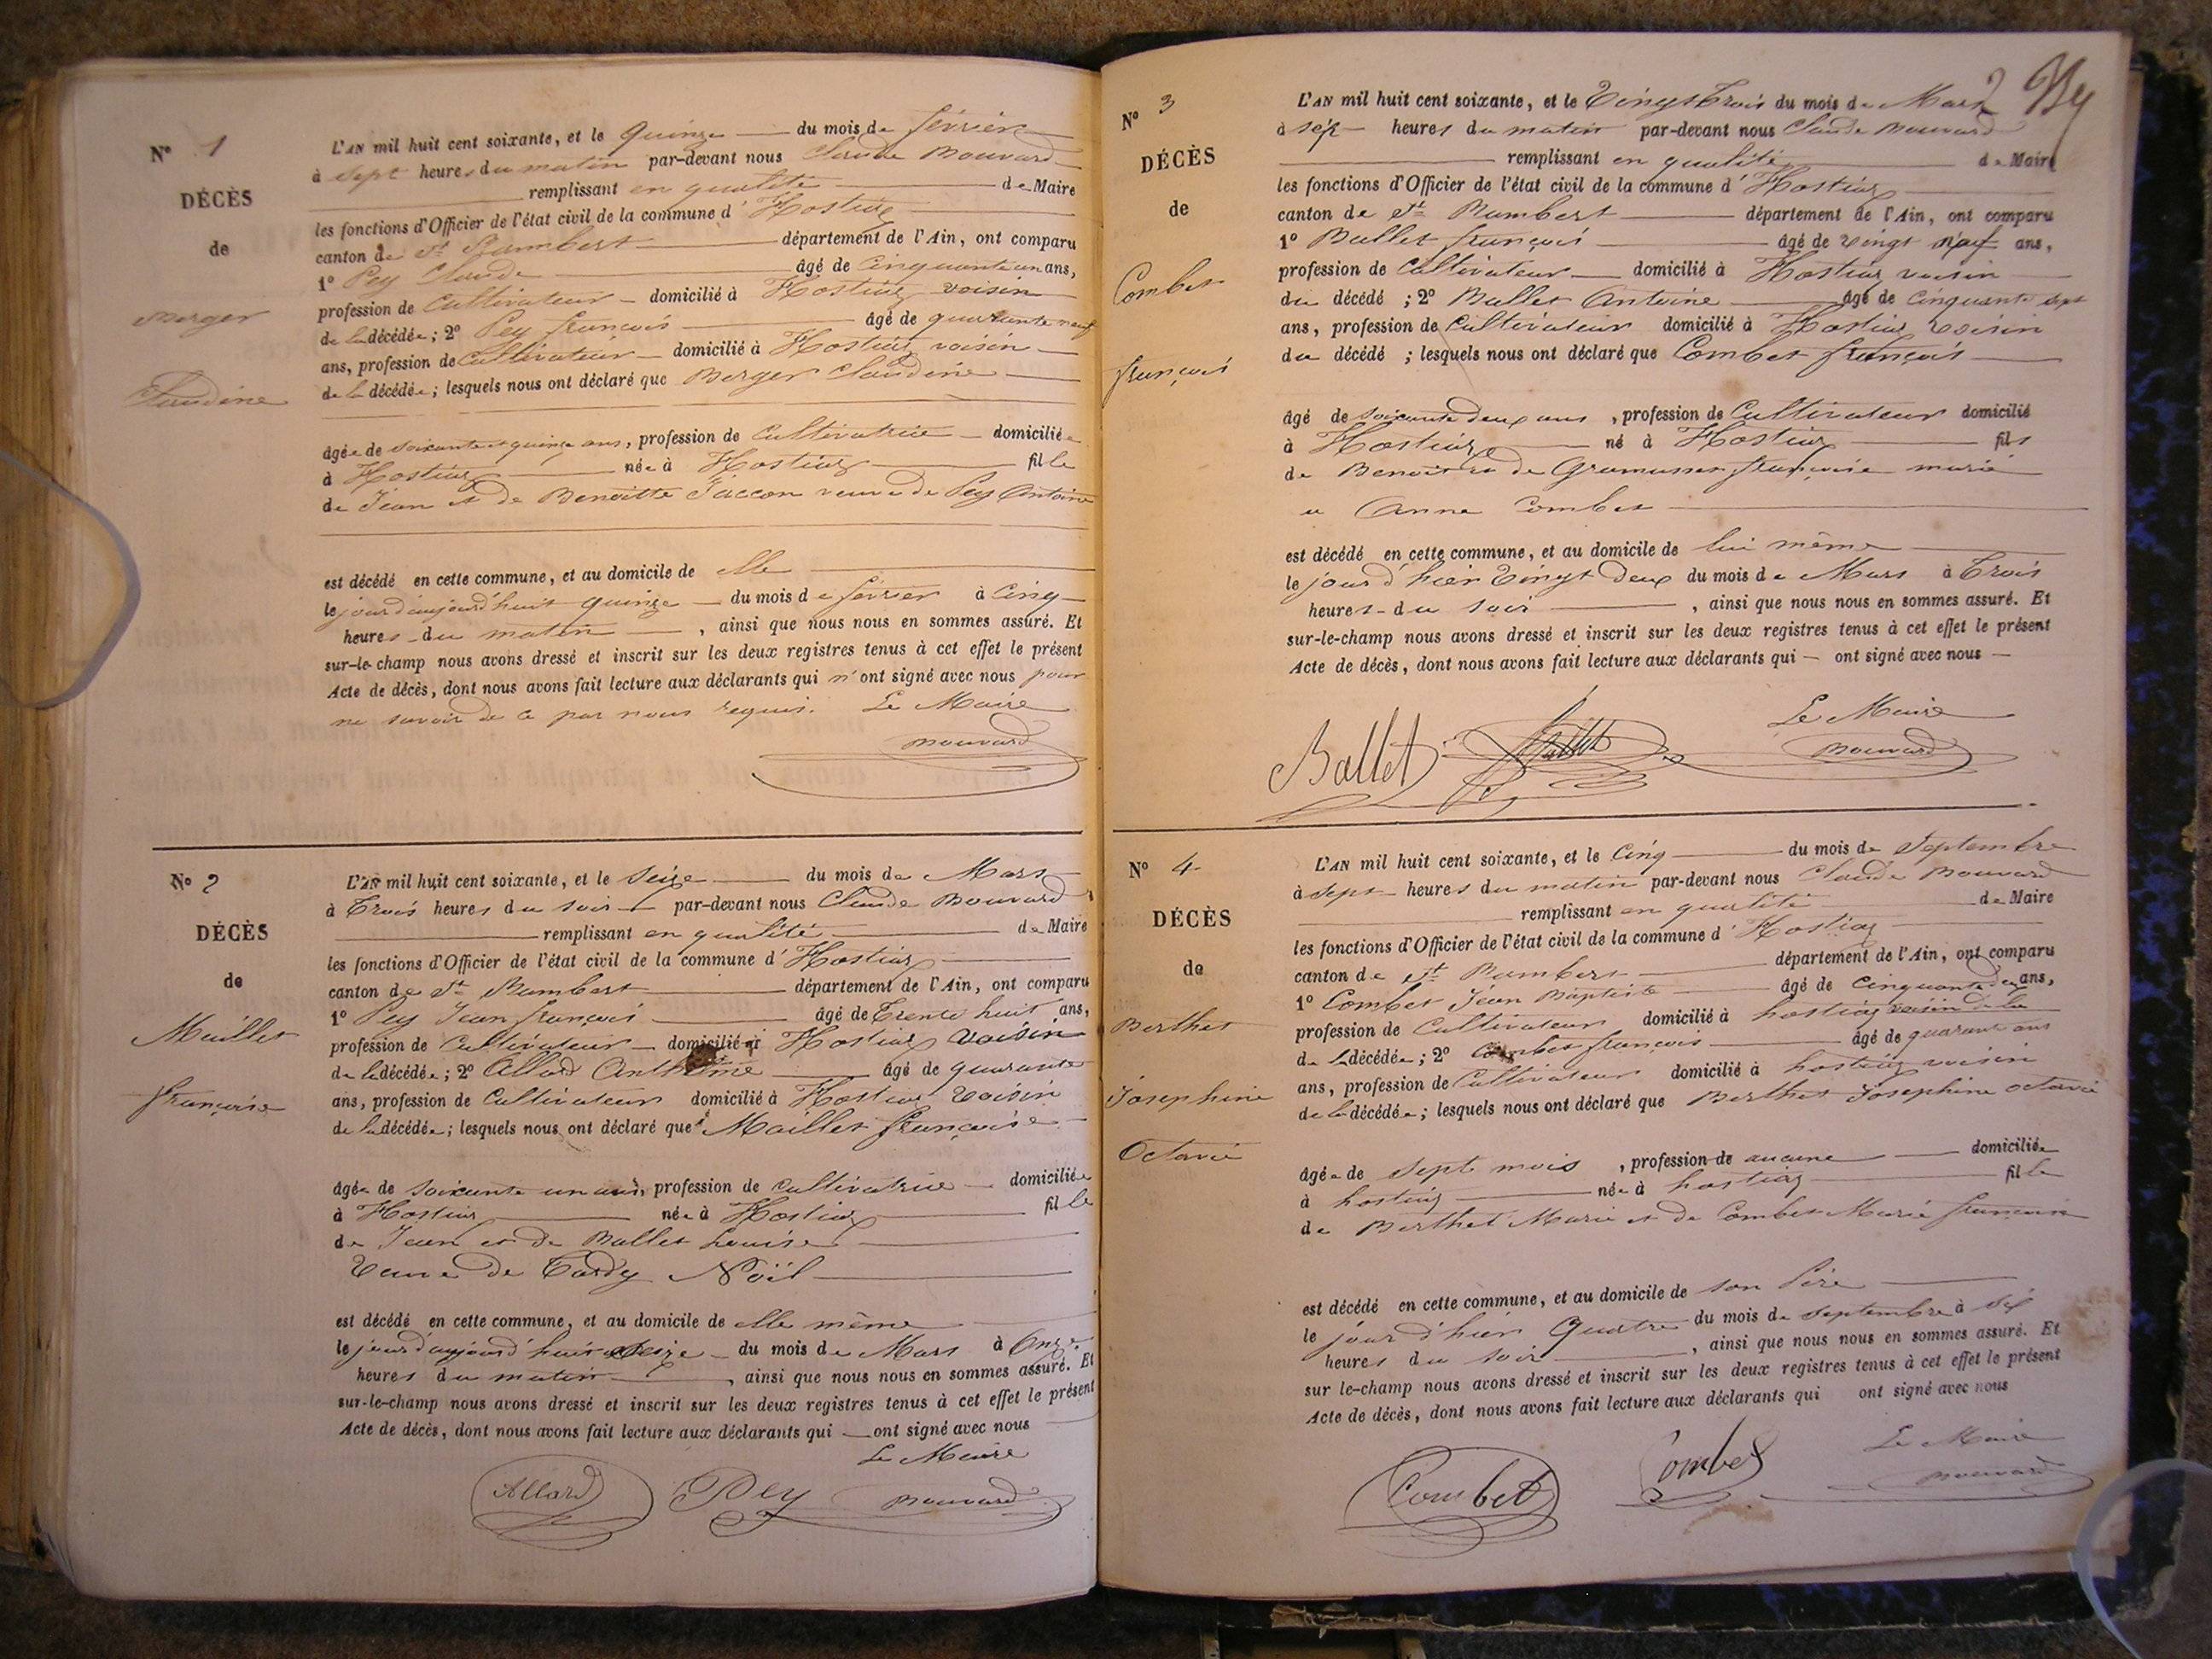 N° 1
DÉCÈS
de
Berger
Claudine
L'AN mil huit cent soixante, et le quinze du mois de février
à sept heures du matin par-devant nous Claude Bouvard
remplissant en qualité de Maire
les fonctions d'Officier de l'état civil de la commune d'Hostiaz
canton de St Rambert département de l'Ain, ont comparu
1° Pey Claude âgé de cinquante un ans,
profession de Cultivateur domicilié à Hostiaz voisin
de la décédée; 2° Pey françois âgé de quarante neuf
ans, profession de Cultivateur domicilié à Hostiaz voisin
de la décédée; lesquels nous ont déclaré que Berger Claudine
âgée de soixante et quinze ans, profession de Cultivatrice domiciliée
à Hostiaz née à Hostiaz fille
de Jean et de Benoitte Jaccon veuve de Pey Antoine
est décédé en cette commune, et au domicile de elle
le jour d'aujourd'huit quinze du mois de février à Cinq
heures du matin, ainsi que nous nous en sommes assuré. Et
sur-le-champ nous avons dressé et inscrit sur les deux registres tenus à cet effet le présent
Acte de décès, dont nous avons fait lecture aux déclarants qui n'ont signé avec nous pour
ne savoir de ce par nous requis. Le Maire
Bouvard
N° 2
DÉCÈS
de
Maillet
françoise
L'AN mil huit cent soixante, et le Seize du mois de Mars
à Trois heures du soir par-devant nous Claude Bouvard
remplissant en qualité de Maire
les fonctions d'Officier de l'état civil de la commune d'Hostiaz
canton de St Rambert département de l'Ain, ont comparu
1° Pey Jean françois âgé de Trente huit ans,
profession de Cultivateur domicilié à Hostiaz voisin
de la décédée; 2° Allard Anthelme âgé de quarante
ans, profession de Cultivateur domicilié à Hostiaz Voisin
de la décédée; lesquels nous ont déclaré que Maillet françoise
âgée de soixante un ans, profession de Cultivatrice domiciliée
à Hostiaz née à Hostiaz fille
de Jean et de Ballet Louise
Veuve de Tardy Noël
est décédé en cette commune, et au domicile de elle même
le jour d'aujourd'huit Seize du mois de Mars à Onze
heures du matin, ainsi que nous nous en sommes assuré. Et
sur-le-champ nous avons dressé et inscrit sur les deux registres tenus à cet effet le présent
Acte de décès, dont nous avons fait lecture aux déclarants qui ont signé avec nous
Le Maire
Allard Pey Bouvard
N° 3
DÉCÈS
de
Combet
françois
2
L'AN mil huit cent soixante, et le Vingt Trois du mois de Mars
à sept heures du matin par-devant nous Claude Bouvard
remplissant en qualité de Maire
les fonctions d'Officier de l'état civil de la commune d'Hostiaz
canton de St Rambert département de l'Ain, ont comparu
1° Ballet françois âgé de vingt neuf ans,
profession de Cultivateur domicilié à Hostiaz voisin
du décédé; 2° Ballet Antoine âgé de cinquante sept
ans, profession de Cultivateur domicilié à Hostiaz Voisin
du décédé; lesquels nous ont déclaré que Combet françois
âgé de soixante deux ans, profession de Cultivateur domicilié
à Hostiaz né à Hostiaz fils
de Benoit et de Gramusset françoise marié
a Anne Combet
est décédé en cette commune, et au domicile de lui même
le jour d'hier Vingt deux du mois de Mars à Trois
heures du soir, ainsi que nous nous en sommes assuré. Et
sur-le-champ nous avons dressé et inscrit sur les deux registres tenus à cet effet le présent
Acte de décès, dont nous avons fait lecture aux déclarants qui ont signé avec nous
Le Maire
Ballet Ballet Bouvard
N° 4
DÉCÈS
de
Berthet
Josephine
Octavie
L'AN mil huit cent soixante, et le Cinq du mois de Septembre
à sept heures du matin par-devant nous Claude Bouvard
remplissant en qualité de Maire
les fonctions d'Officier de l'état civil de la commune d'Hostiaz
canton de St Rambert département de l'Ain, ont comparu
1° Combet Jean Baptiste âgé de cinquante deux ans,
profession de Cultivateur domicilié à hostiaz voisin de la
de la décédée; 2° Combet françois âgé de quarante ans
ans, profession de Cultivateur domicilié à hostiaz voisin
de la décédée; lesquels nous ont déclaré que Berthet Josephine Octavie
âgée de sept mois, profession de aucune domiciliée
à hostiaz née à hostiaz fille
de Berthet Marie et de Combet Marie françoise
est décédé en cette commune, et au domicile de son Père
le jour d'hier Quatre du mois de septembre à Six
heures du soir, ainsi que nous nous en sommes assuré. Et
sur le-champ nous avons dressé et inscrit sur les deux registres tenus à cet effet le présent
Acte de décès, dont nous avons fait lecture aux déclarants qui ont signé avec nous
Le Maire
Combet Combet Bouvard